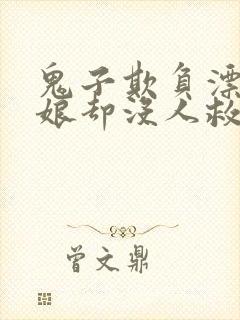 鬼子欺负漂
娘却没人救
曾文鼎